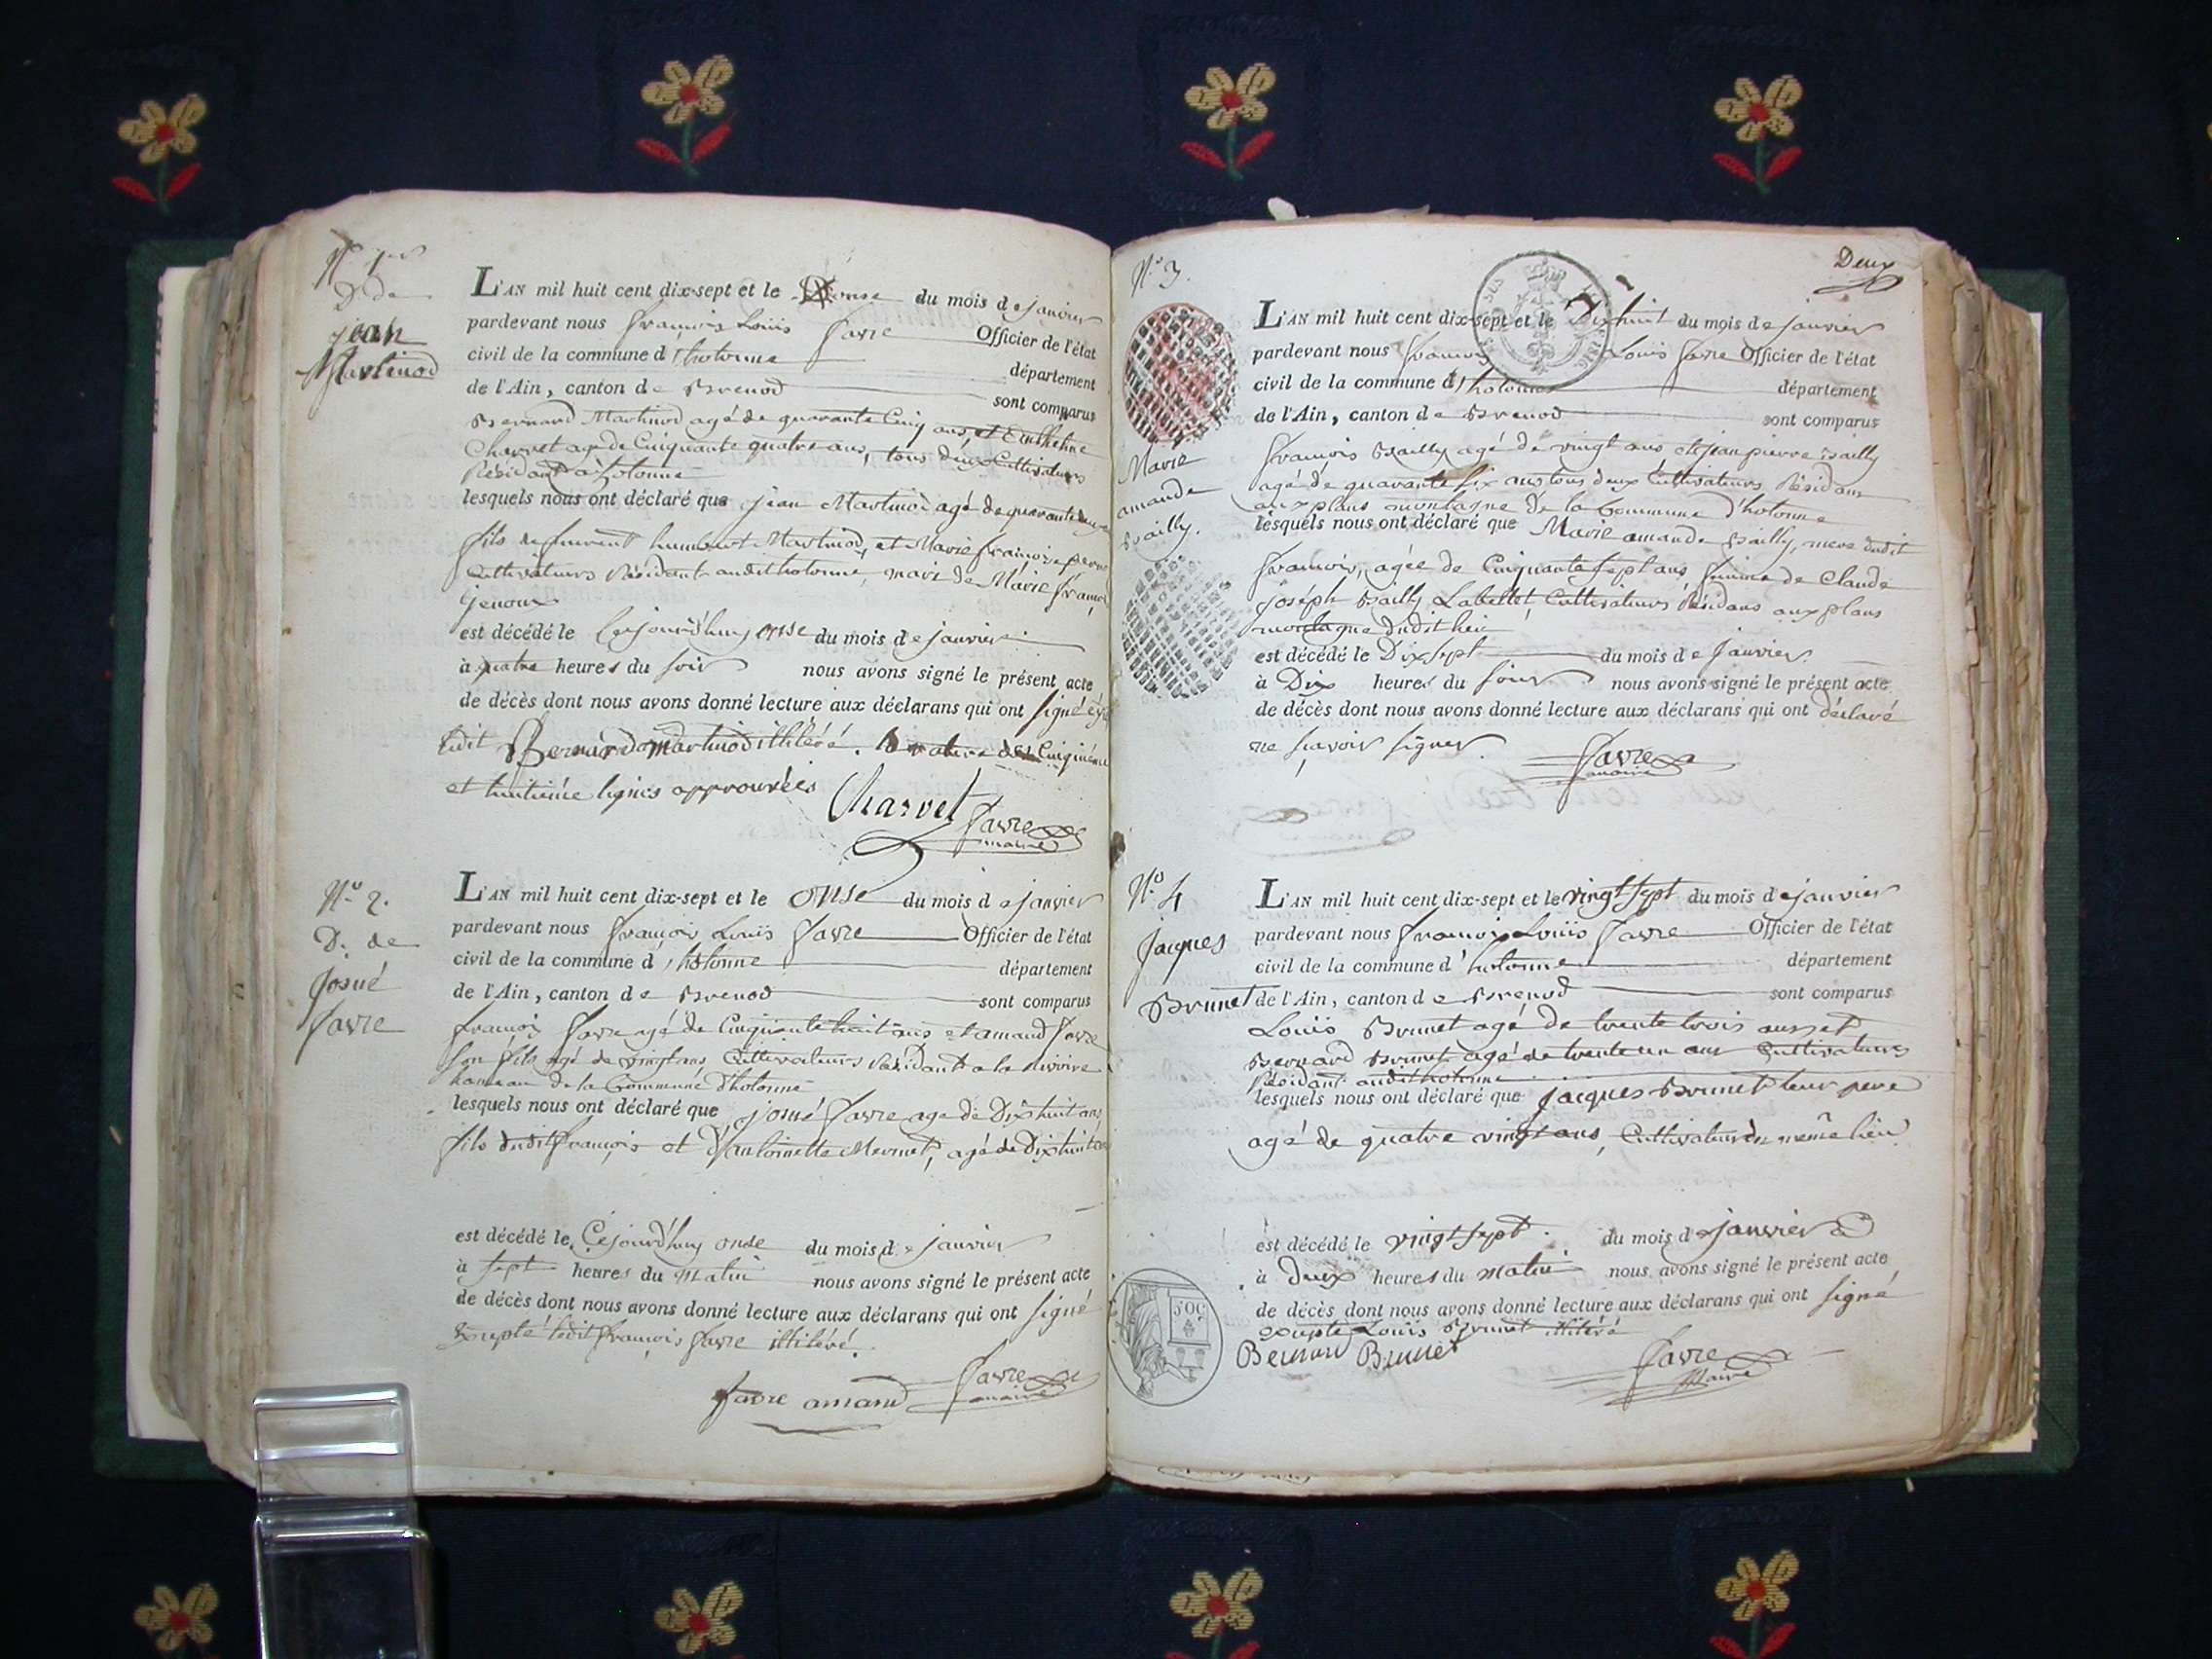 N.º 1er
D. de
jean
Martinod
L'AN mil huit cent dix-sept et le onse du mois de janvier
pardevant nous françois Louis favre Officier de l'état
civil de la commune d'hotonne département
de l'Ain, canton de Brenod sont comparus
Bernard Martinod agé de quarante Cinq ans, et
Charvet agé de Cinquante quatre ans, tous deux Cultivateurs
Résidant à hotonne
lesquels nous ont déclaré que jean Martinod agé de quarante
fils de humbert Martinod, et Marie françoise
Cultivateurs Résidant audit hotonne, mari de Marie
Genoux
est décédé le Cejourd'huy onse du mois de janvier
à quatre heures du soir nous avons signé le présent acte
de décès dont nous avons donné lecture aux déclarans qui ont signé
ledit Bernard martinod illitéré. la rature des Cinquième
et huitième lignes approuvées
Charvet
favre
maire
N.º 2.
D. de
Josué
favre
L'AN mil huit cent dix-sept et le onse du mois de janvier
pardevant nous françois Louis favre Officier de l'état
civil de la commune d'hotonne département
de l'Ain, canton de Brenod sont comparus
françois favre agé de Cinquante huit ans et amand favre
son fils agé de vingt ans, Cultivateurs Résidant a la Rivoire
hameau de la Commune d'hotonne
lesquels nous ont déclaré que josué favre age de Dix huit ans
fils dudit françois et d'antoinette Mermet, agé de Dix huit ans
est décédé le Cejourd'huy onse du mois de janvier
à sept heures du matin nous avons signé le présent acte
de décès dont nous avons donné lecture aux déclarans qui ont signé
Excepté ledit françois favre illitéré.
favre amand
favre
maire
Deux
N.º 3.
Marie
amande
Bailly.
L'AN mil huit cent dix-sept et le Dix huit du mois de janvier
pardevant nous françois Louis favre Officier de l'état
civil de la commune d'hotonne département
de l'Ain, canton de Brenod sont comparus
françois Bailly agé de vingt ans, et jean pierre Bailly
agé de quarante six ans tous deux Cultivateurs Résidans
aux plans montagne de la Commune d'hotonne
lesquels nous ont déclaré que Marie amande Bailly, mere dudit
françois, agée de Cinquante sept ans, femme de Claude
joséph Bailly Labellet, Cultivateurs Résidans aux plans
montagne dudit lieu
est décédé le Dix sept du mois de janvier
à Dix heures du soir nous avons signé le présent acte
de décès dont nous avons donné lecture aux déclarans qui ont déclaré
ne sçavoir signer
favre
maire
N.º 4
Jacques
Brunet
L'AN mil huit cent dix-sept et le vingt sept du mois de janvier
pardevant nous françois Louis favre Officier de l'état
civil de la commune d'hotonne département
de l'Ain, canton de Brenod sont comparus
Louis Brunet agé de trente trois ans, et
Bernard Brunet agé de trente un ans Cultivateurs
Résidant audit hotonne
lesquels nous ont déclaré que jacques Brunet leur pere
agé de quatre vingt ans, Cultivateur en même lieu
est décédé le vingt sept du mois de janvier
à deux heures du matin nous avons signé le présent acte
de décès dont nous avons donné lecture aux déclarans qui ont signé
excepté Louis Brunet illitéré
Bernard Brunet
favre
Maire
50C